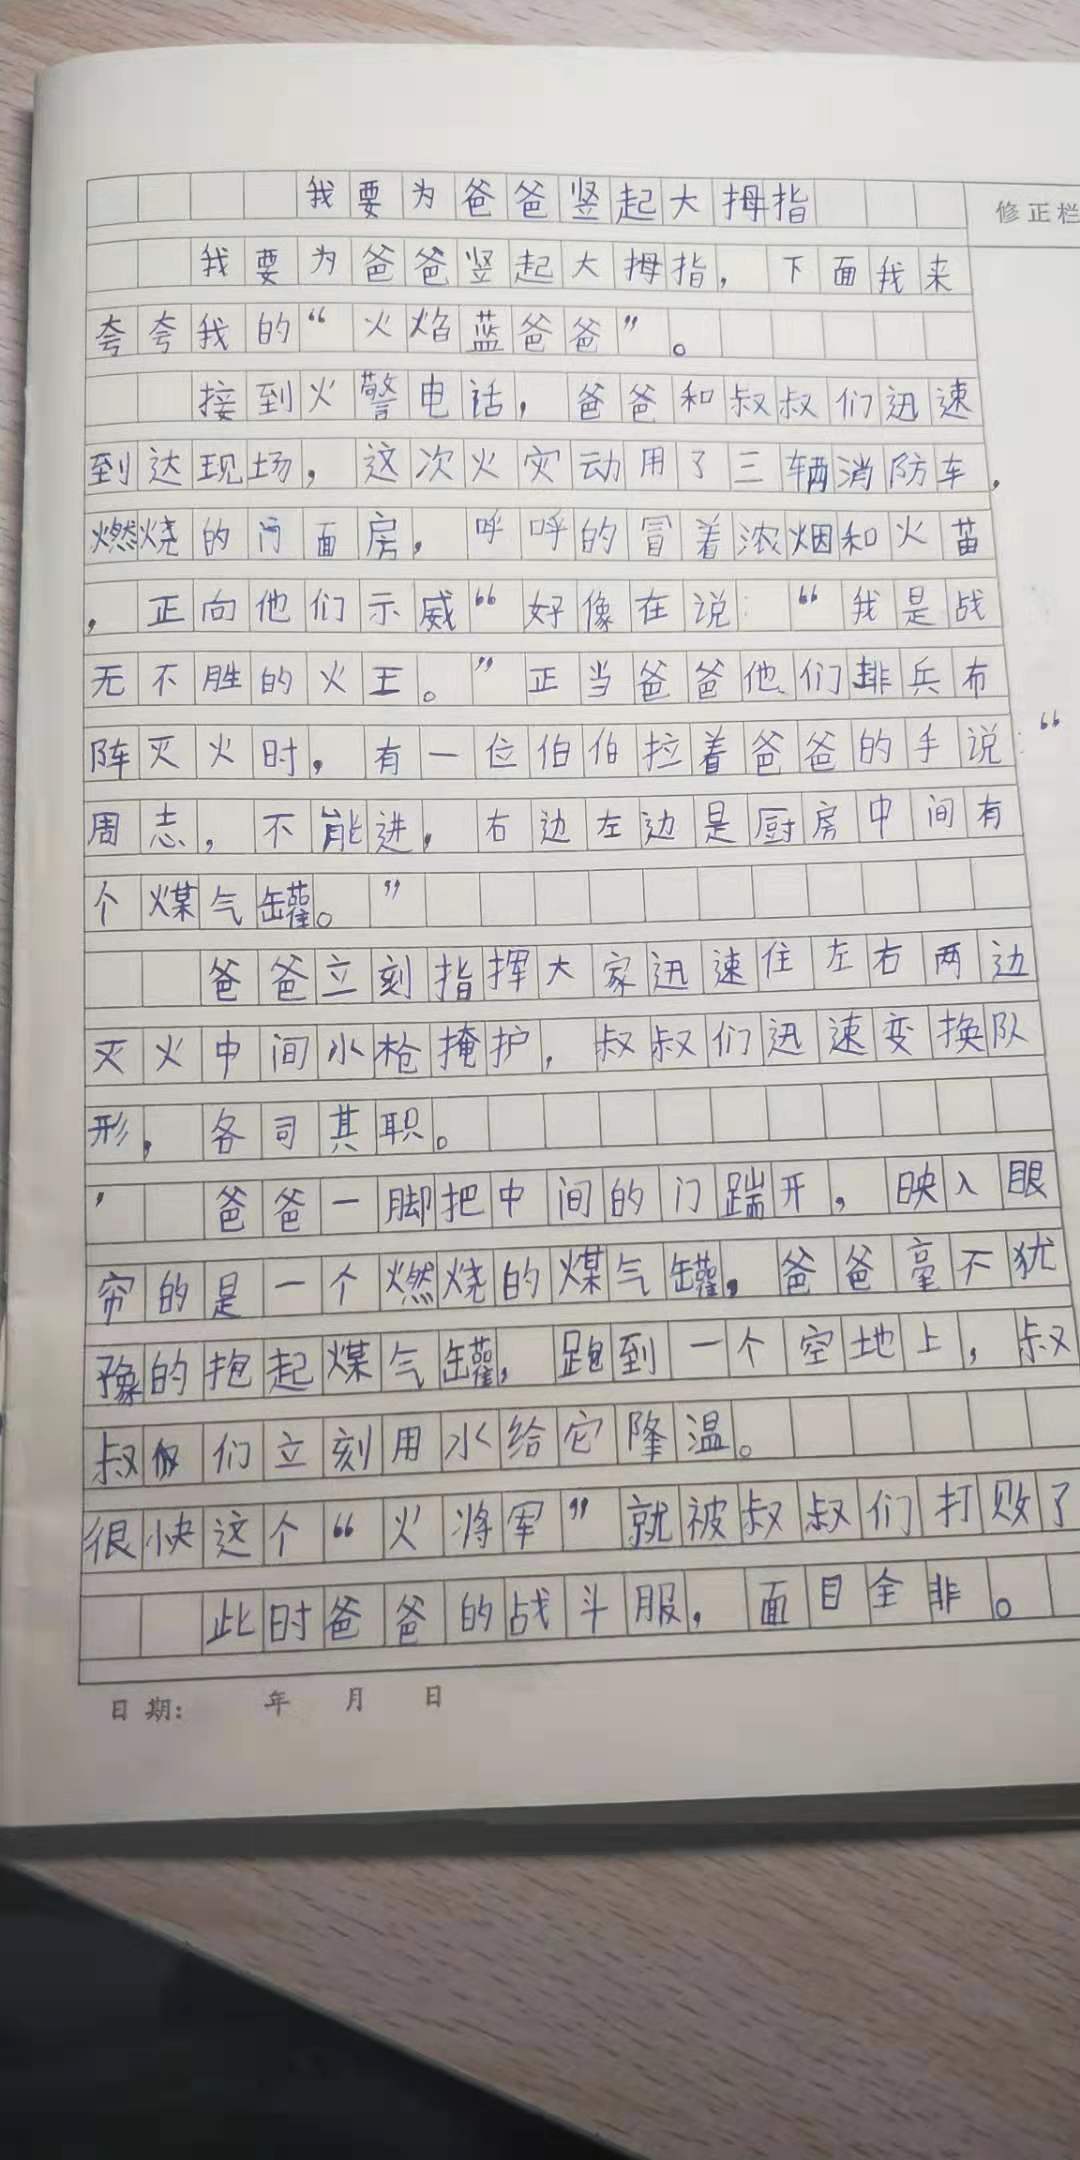 我要为爸爸竖起大拇指
修正栏
我要为爸爸竖起大拇指，下面我来
夸夸我的“火焰蓝爸爸”。
接到火警电话，爸爸和叔叔们迅速
到达现场，这次火灾动用了三辆消防车，
燃烧的门面房，呼呼的冒着浓烟和火苗
，正向他们示威“好像在说：“我是战
无不胜的火王。”正当爸爸他们排兵布
阵灭火时，有一位伯伯拉着爸爸的手说：“
周志，不能进，右边左边是厨房中间有
个煤气罐。”
爸爸立刻指挥大家迅速住左右两边
灭火中间水枪掩护，叔叔们迅速变换队
形，各司其职。
爸爸一脚把中间的门踹开，映入眼
帘的是一个燃烧的煤气罐，爸爸毫不犹
豫的抱起煤气罐，跑到一个空地上，叔
叔们立刻用水给它降温。
很快这个“火将军”就被叔叔们打败了
此时爸爸的战斗服，面目全非。
日期：　年　月　日